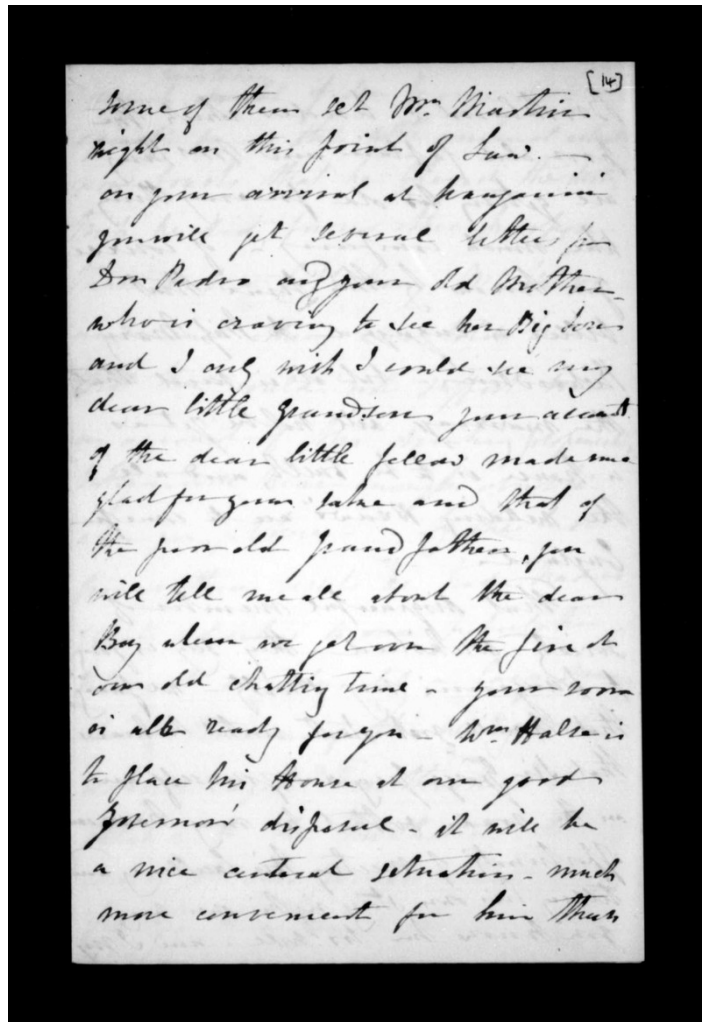 [14]
some of them set Wm. Martin
right on this point of Law. —
on your arrival at Wanganui
you will get several letters fm
Don Pedro and your old Mother -
who is craving to see her Big Son
and I only wish I could see my
dear little grandson your account
of the dear little fellow made me
glad for your sake and that of
the poor old Grandfather, you
will tell me all about the dear
Boy when we get over the fire at
our old chatting time - your room
is all ready for you - Wm Halse is
to place his House at our good
Governors' disposal - it will be
a nice central situation - much
more convenient for him than